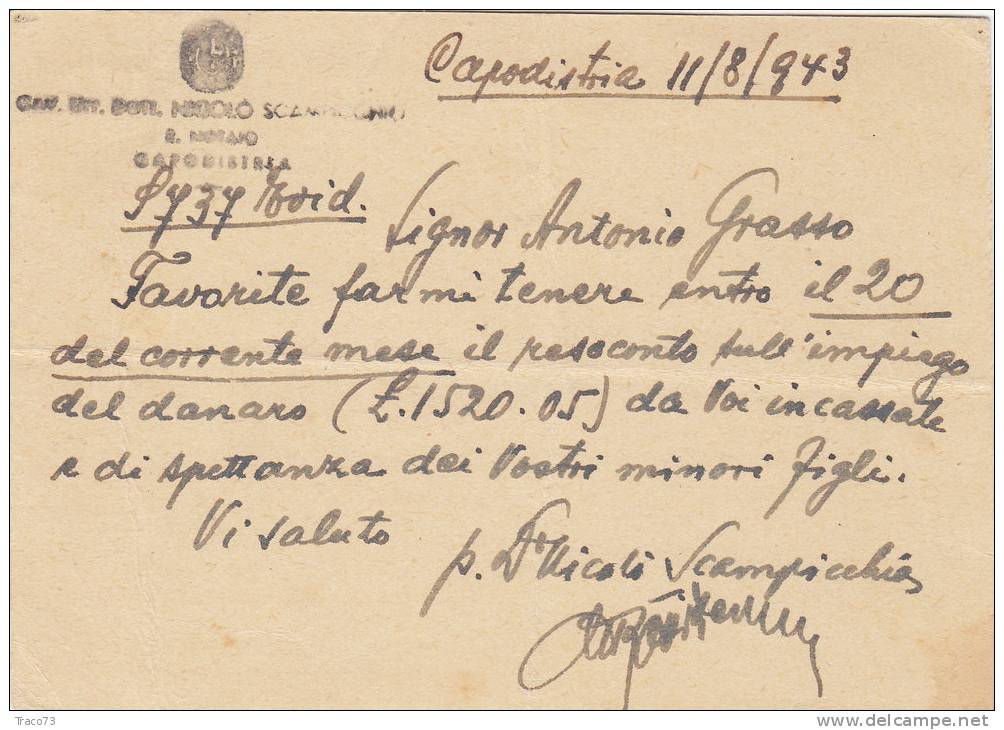 Capodistria 11/8/943
CAV. UFF. DOTT. NICCOLÒ SCAMPICCHIO
R. NOTAIO
CAPODISTRIA
Signor Antonio Grasso
Favorite farmi tenere entro il 20
del corrente mese il resoconto sull'impiego
del danaro (£.1520.05) da Voi incassate
e di spettanza dei Vostri minori figli.
Vi saluto
p. Dr Nicolò Scampicchio
Traco73
delcampe.net